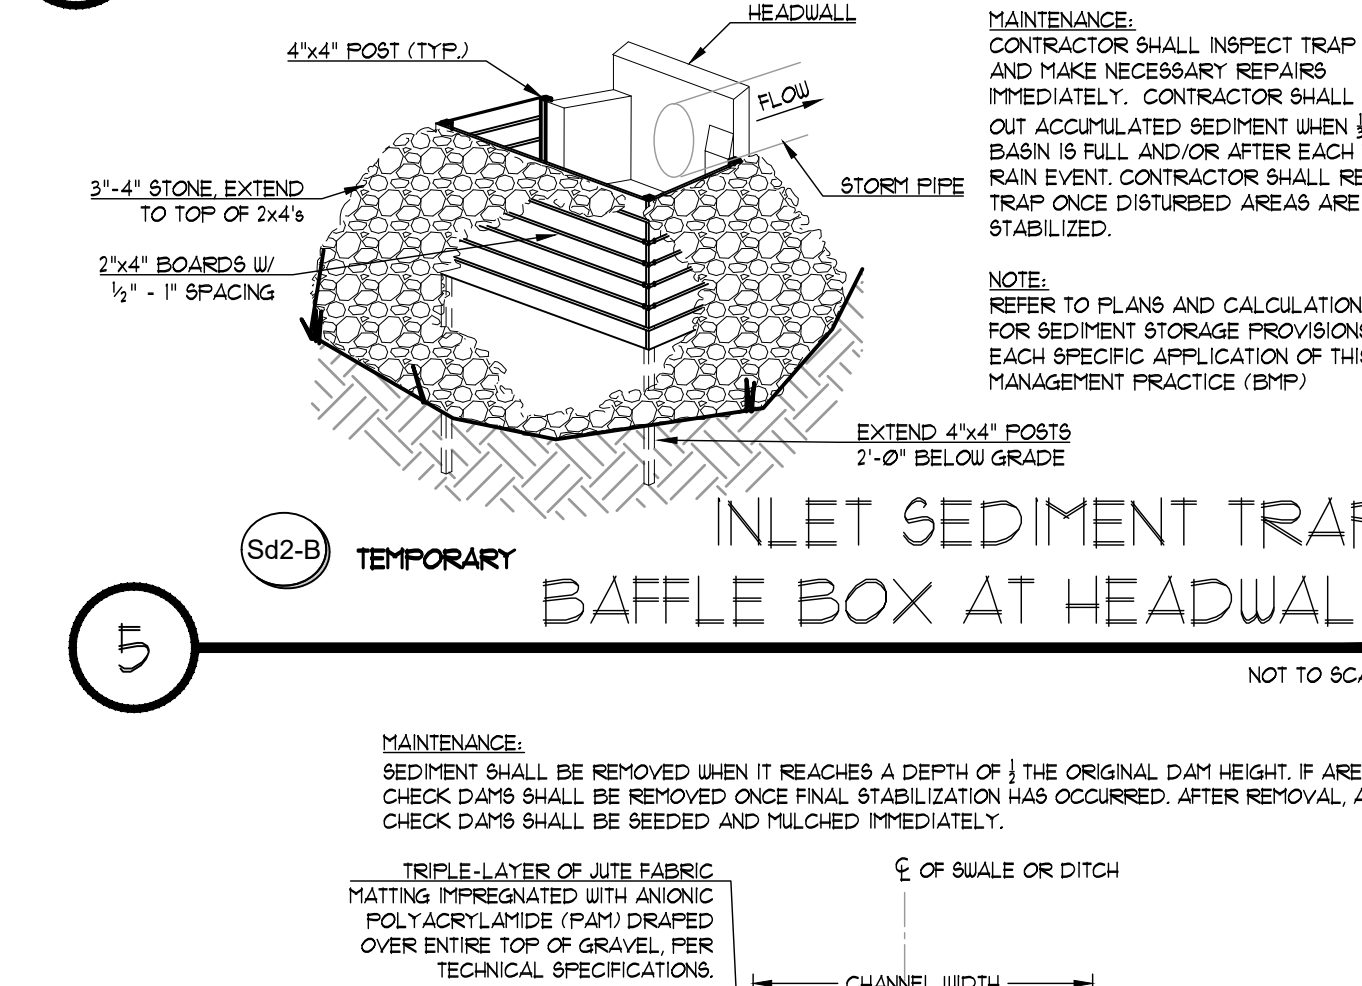 HEADWALL
4"x4" POST (TYP.)
FLOW
STORM PIPE
3"-4" STONE, EXTEND
TO TOP OF 2x4's
2"x4" BOARDS W/
½" - 1" SPACING
EXTEND 4"x4" POSTS
2'-0" BELOW GRADE
MAINTENANCE:
CONTRACTOR SHALL INSPECT TRAP
AND MAKE NECESSARY REPAIRS
IMMEDIATELY. CONTRACTOR SHALL
OUT ACCUMULATED SEDIMENT WHEN
BASIN IS FULL AND/OR AFTER EACH
RAIN EVENT. CONTRACTOR SHALL RE
TRAP ONCE DISTURBED AREAS ARE
STABILIZED.
NOTE:
REFER TO PLANS AND CALCULATION
FOR SEDIMENT STORAGE PROVISIONS
EACH SPECIFIC APPLICATION OF THIS
MANAGEMENT PRACTICE (BMP)
Sd2-B
TEMPORARY
INLET SEDIMENT TRAP
BAFFLE BOX AT HEADWAL
5
NOT TO SCA
MAINTENANCE:
SEDIMENT SHALL BE REMOVED WHEN IT REACHES A DEPTH OF ½ THE ORIGINAL DAM HEIGHT. IF ARE
CHECK DAMS SHALL BE REMOVED ONCE FINAL STABILIZATION HAS OCCURRED. AFTER REMOVAL, A
CHECK DAMS SHALL BE SEEDED AND MULCHED IMMEDIATELY.
TRIPLE-LAYER OF JUTE FABRIC
MATTING IMPREGNATED WITH ANIONIC
POLYACRYLAMIDE (PAM) DRAPED
OVER ENTIRE TOP OF GRAVEL, PER
TECHNICAL SPECIFICATIONS.
℄ OF SWALE OR DITCH
CHANNEL WIDTH